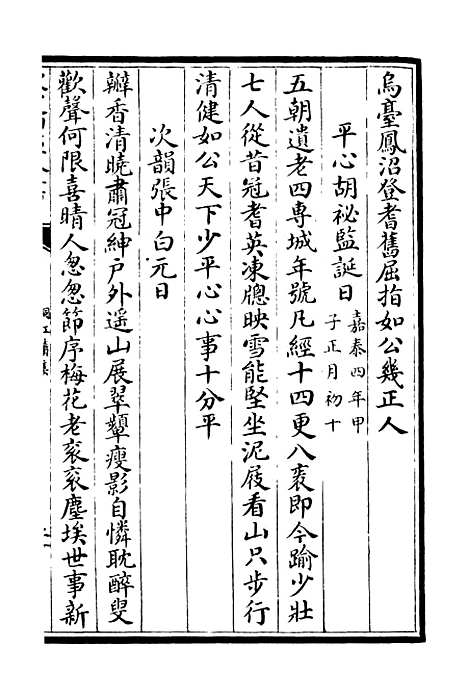 烏臺鳳沼登耆舊屈指如公幾正人
平心胡祕監誕日嘉泰四年甲
子正月初十
五朝遺老四専城年號凡經十四更八袠即今踰少壯
七人從昔冠耆英凍牕映雪能堅坐泥屐看山只步行
清健如公天下少平心心事十分平
次韻張中白元日
辦香清曉肅冠紳户外遥山展翠顰瘦影自憐耽醉叟
歡聲何限喜晴人怱怱節序梅花老衮衮塵埃世事新